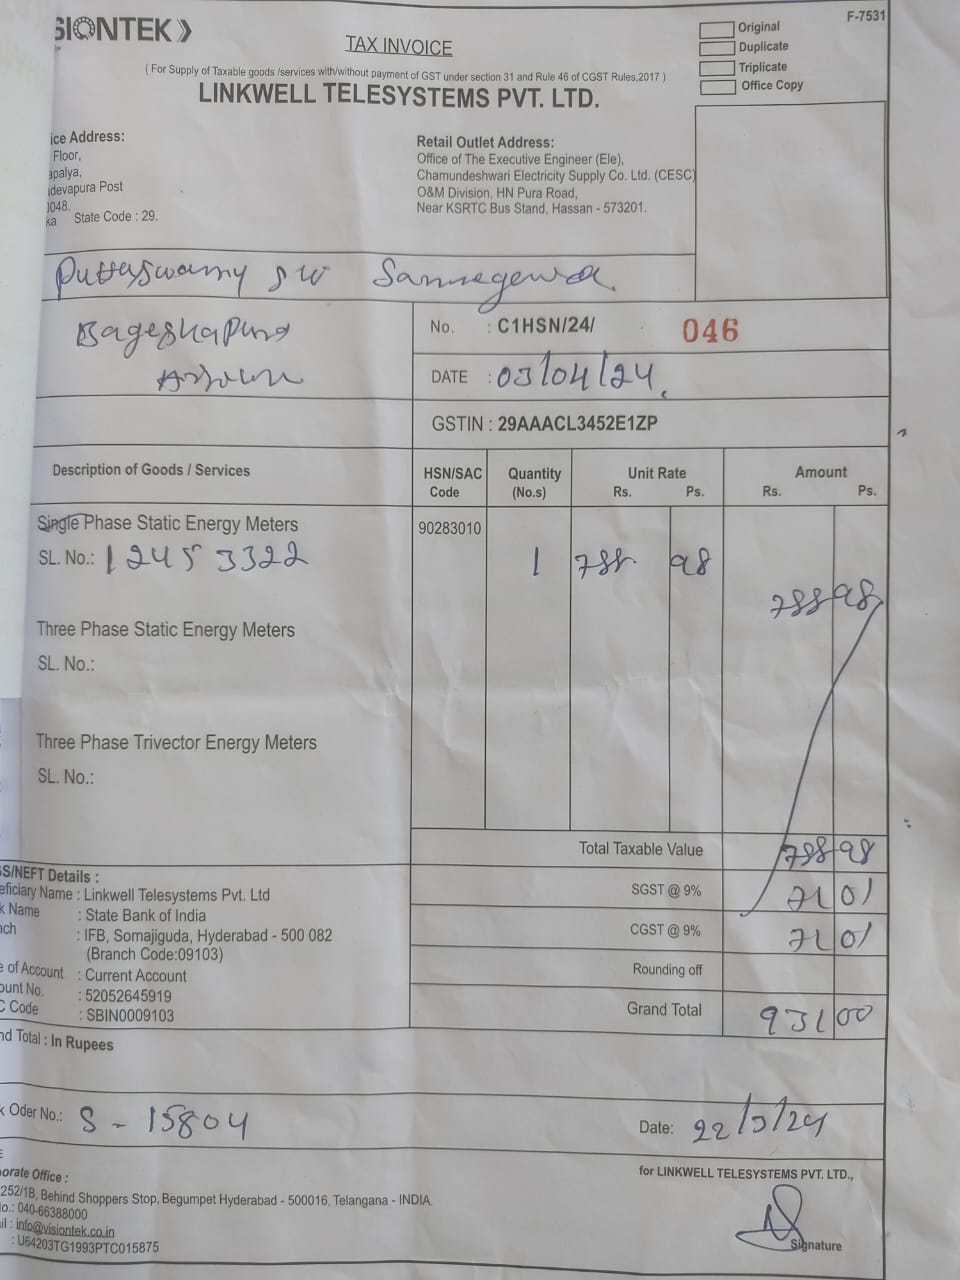 SIONTEK
F-7531
TAX INVOICE
Original
Duplicate
Triplicate
Office Copy
( For Supply of Taxable goods /services with/without payment of GST under section 31 and Rule 46 of CGST Rules,2017 )
LINKWELL TELESYSTEMS PVT. LTD.
ice Address:
Floor,
apalya,
adevapura Post
0048.
ka State Code : 29.
Retail Outlet Address:
Office of The Executive Engineer (Ele),
Chamundeshwari Electricity Supply Co. Ltd. (CESC)
O&M Division, HN Pura Road,
Near KSRTC Bus Stand, Hassan - 573201.
Puttaswamy S/o Sannegowda
Bageshapura
No. : C1HSN/24/ 046
DATE : 03/04/24
GSTIN : 29AAACL3452E1ZP
Description of Goods / Services HSN/SAC Code Quantity (No.s) Unit Rate Rs. Ps. Amount Rs. Ps.
Single Phase Static Energy Meters 90283010
SL. No.: 12453322 1 788 98
788 98
Three Phase Static Energy Meters
SL. No.:
Three Phase Trivector Energy Meters
SL. No.:
Total Taxable Value 788 98
SGST @ 9% 71 01
CGST @ 9% 71 01
Rounding off
Grand Total 931 00
GS/NEFT Details :
eficiary Name : Linkwell Telesystems Pvt. Ltd
k Name : State Bank of India
nch : IFB, Somajiguda, Hyderabad - 500 082
(Branch Code:09103)
e of Account : Current Account
ount No. : 52052645919
C Code : SBIN0009103
nd Total : In Rupees
k Oder No.: S - 15804 Date: 22/3/24
for LINKWELL TELESYSTEMS PVT. LTD.,
Signature
orate Office :
252/1B, Behind Shoppers Stop, Begumpet Hyderabad - 500016, Telangana - INDIA.
lo.: 040-66388000
il : info@visiontek.co.in
: U64203TG1993PTC015875